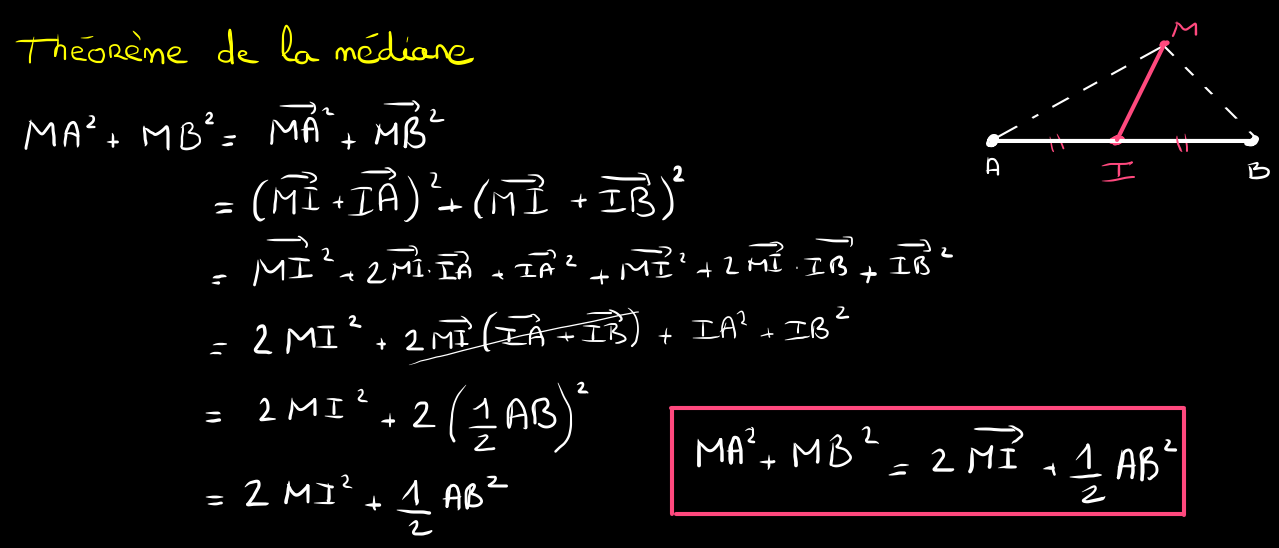 Théorème de la médiane
M
A
I
B
MA² + MB² = \overrightarrow{MA}² + \overrightarrow{MB}²
= (\overrightarrow{MI} + \overrightarrow{IA})² + (\overrightarrow{MI} + \overrightarrow{IB})²
= \overrightarrow{MI}² + 2\overrightarrow{MI}·\overrightarrow{IA} + \overrightarrow{IA}² + \overrightarrow{MI}² + 2\overrightarrow{MI}·\overrightarrow{IB} + \overrightarrow{IB}²
= 2MI² + 2\overrightarrow{MI}(\overrightarrow{IA} + \overrightarrow{IB}) + IA² + IB²
= 2MI² + 2(\frac{1}{2}AB)²
= 2MI² + \frac{1}{2}AB²
MA² + MB² = 2\overrightarrow{MI} + \frac{1}{2}AB²